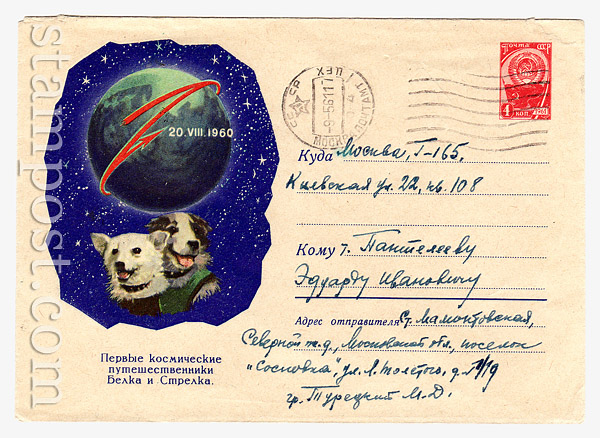 stampost.com
20.VIII.1960
Первые космические
путешественники
Белка и Стрелка.
СССР
МОСКВА ПОЧТАМТ
ПОЧТА СССР
4 КОП. 1961
Куда Москва, Г-165,
Киевская ул. 22, кв. 108
Кому т. Пантелееву
Эдуарду Ивановичу
Адрес отправителя Ст. Мамонтовская,
Северной ж.д., Московской обл., поселок
"Сосновка", ул. Л. Толстого, д.
гр. Турецкий М. Д.